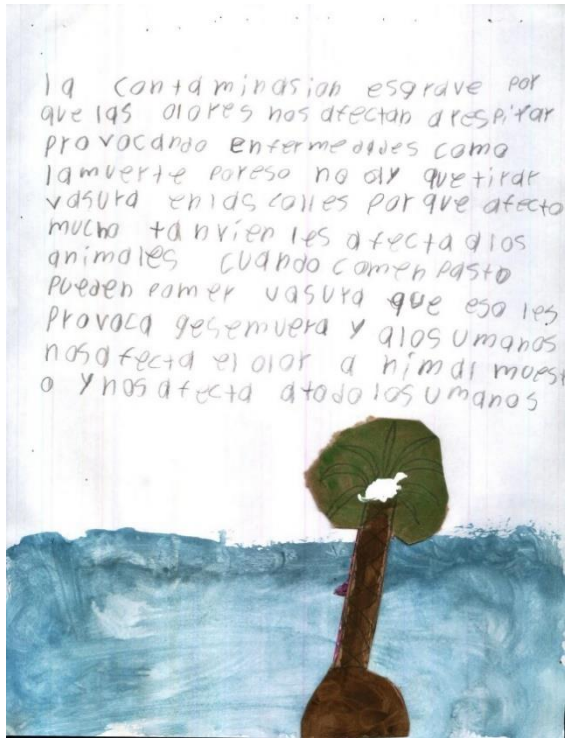 la contaminasion esgrave por
que las olores nos afectan a respirar
provocando enfermedades como
lamuerte poreso no ay que tirar
vasura enlas calles porque afecta
mucho tanvien les afecta alos
animales cuando comen pasto
pueden comer vasura que eso les
provoca gesemuera y alos umanos
nosafecta el olor a nimal muest
o y nos afecta atodo los umanos